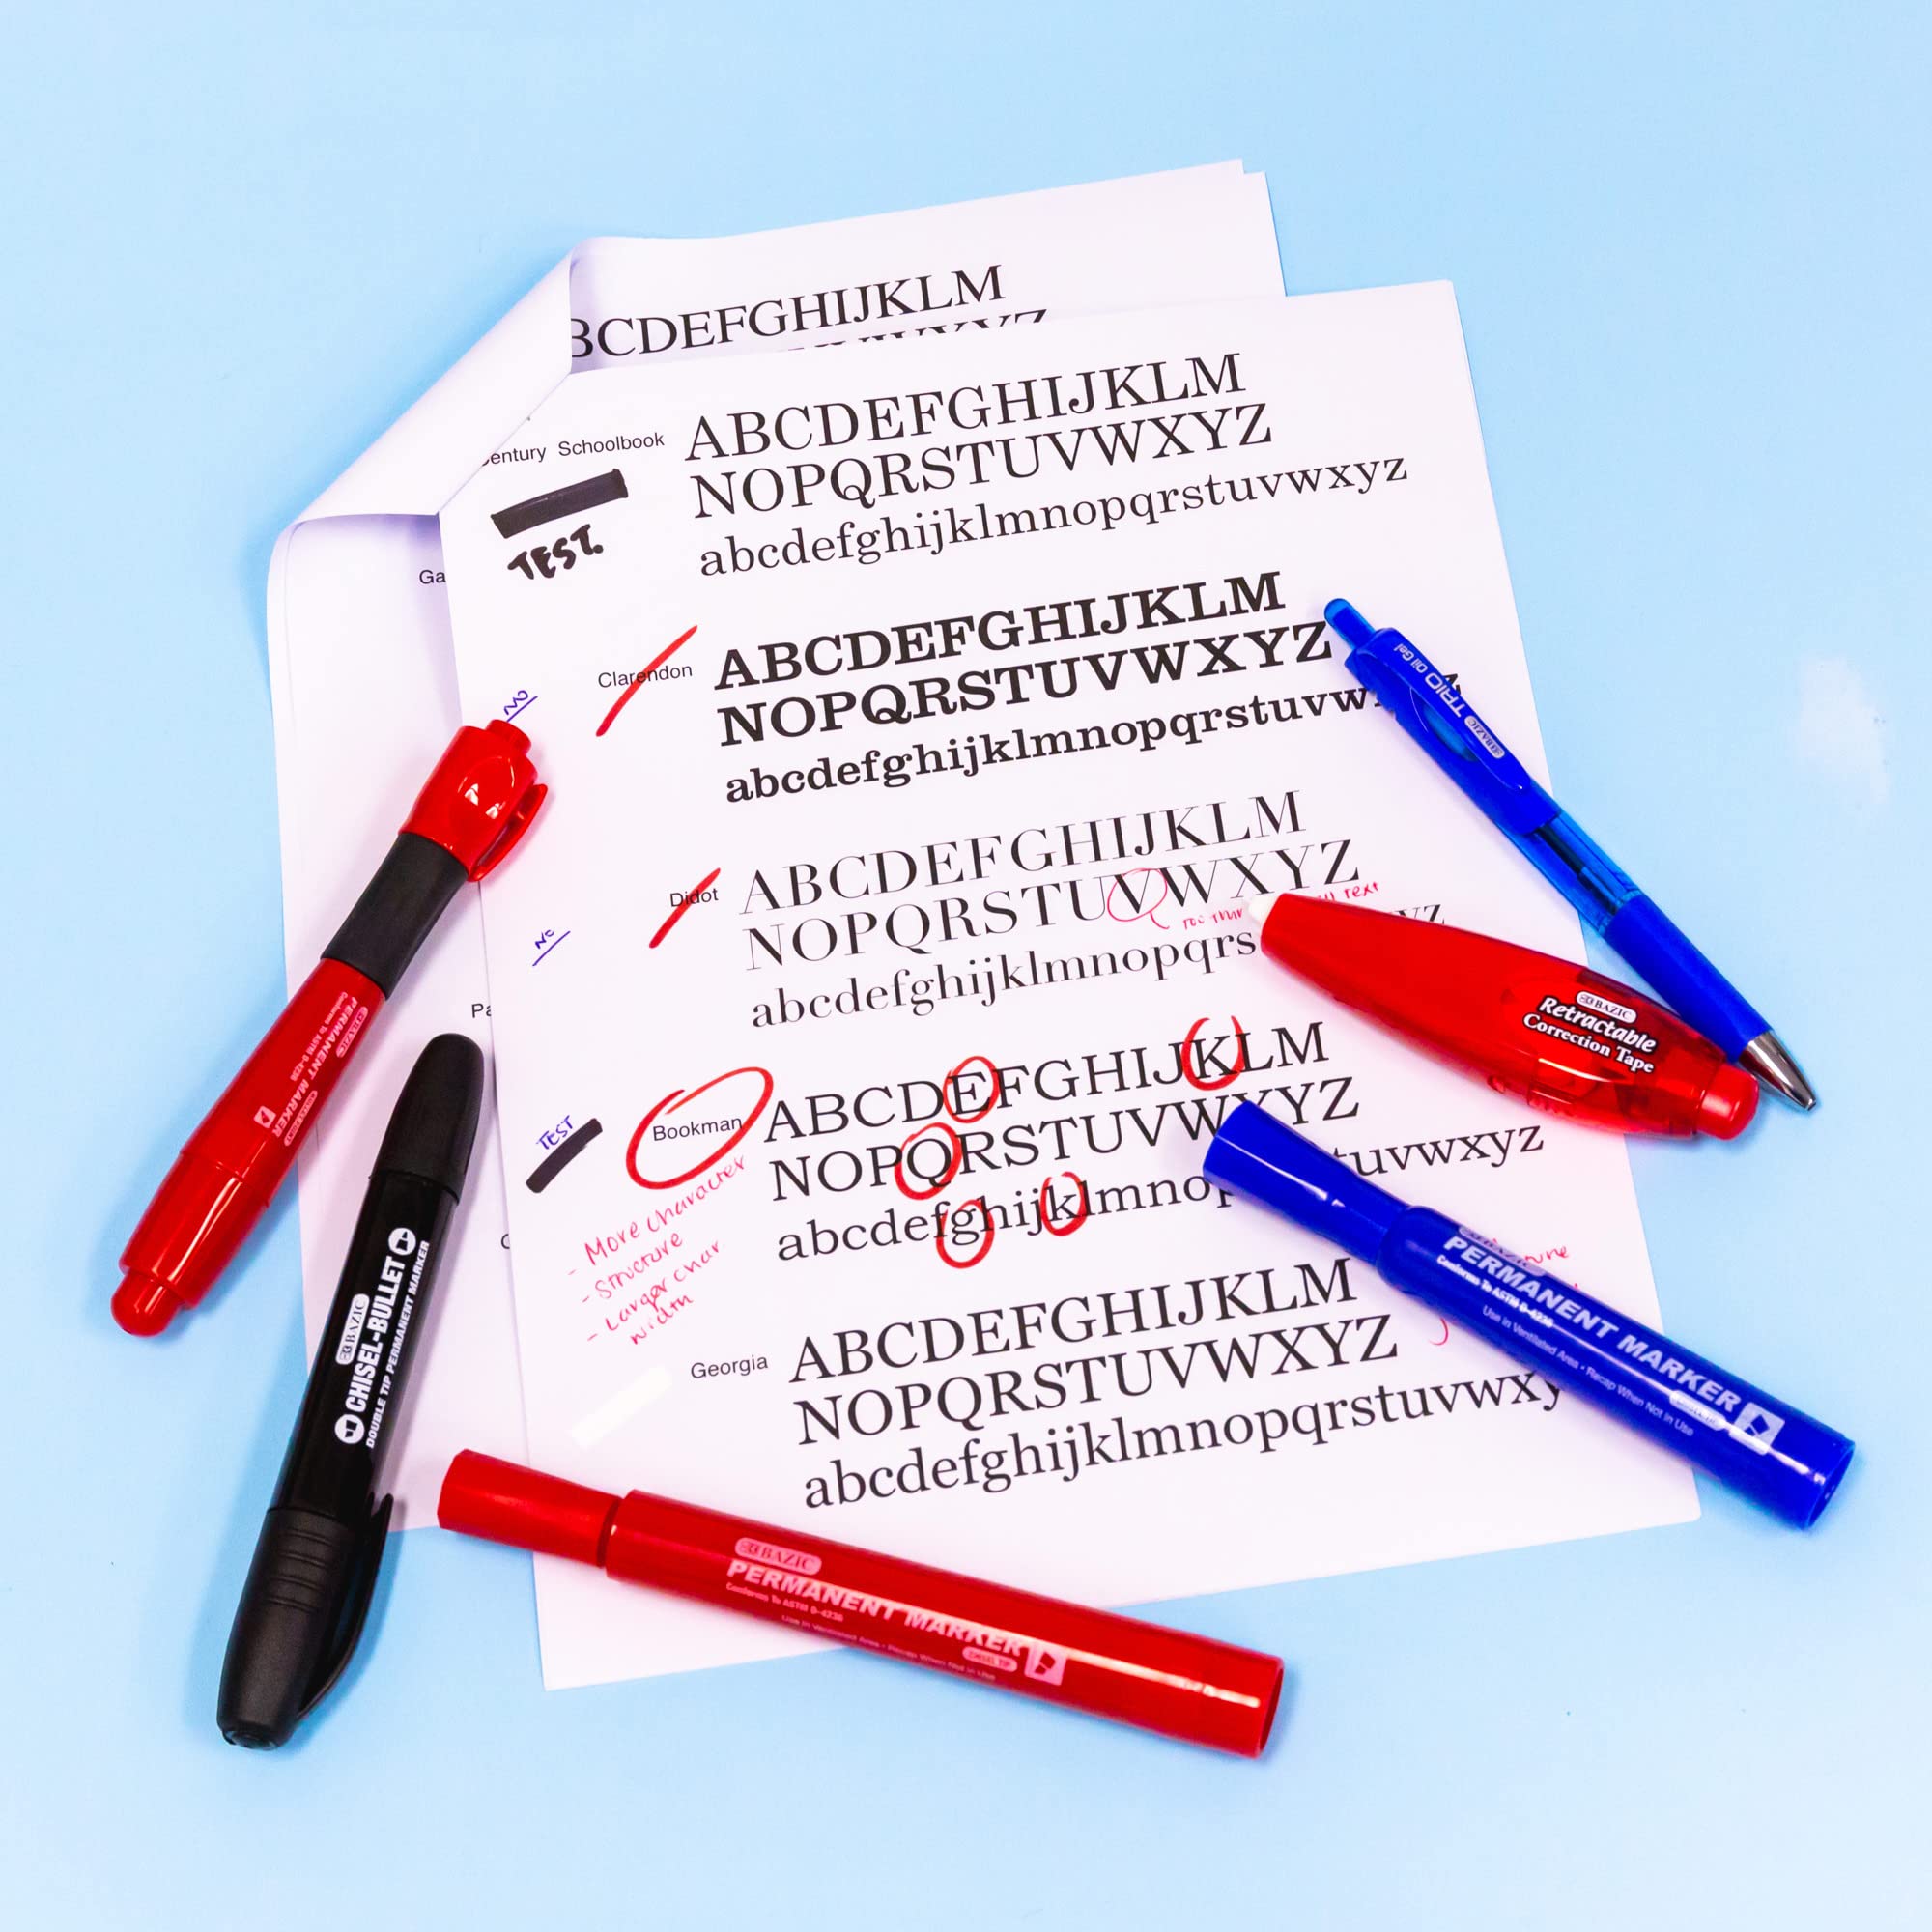 BCDEFGHIJKLM
entury Schoolbook
ABCDEFGHIJKLM
NOPQRSTUVWXYZ
abcdefghijklmnopqrstuvwxyz
TEST.
Ga
Clarendon
ABCDEFGHIJKLM
NOPQRSTUVWXYZ
abcdefghijklmnopqrstuvw
NO
Didot
ABCDEFGHIJKLM
NOPQRSTUVWXYZ
abcdefghijklmnopqrs
yz
text
NO
Pa
Bookman
ABCDEFGHIJKLM
NOPQRSTUVWXYZ
abcdefghijklmnop
tuvwxyz
TEST
- More character
- Structure
- Larger char
width
Georgia
ABCDEFGHIJKLM
NOPQRSTUVWXYZ
abcdefghijklmnopqrstuvwxy
BAZIC TRIO Oil Gel
BAZIC
Retractable
Correction Tape
PERMANENT MARKER
Conforms To ASTM D-4236
Use in Ventilated Area • Recap When Not in Use
BAZIC
PERMANENT MARKER
Conforms To ASTM D-4236
BAZIC
CHISEL-BULLET
DOUBLE TIP PERMANENT MARKER
BAZIC
PERMANENT MARKER
Conforms To ASTM D-4236
CHISEL TIP
Use in Ventilated Area • Recap When Not in Use